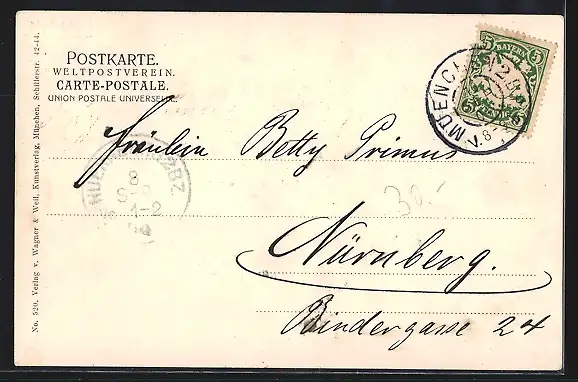 POSTKARTE.
WELTPOSTVEREIN.
CARTE-POSTALE.
UNION POSTALE UNIVERSELLE.
BAYERN
5 5
5 5
MUENCH
V. 8-
8
S
1-2
Fräulein Betty Primus
30.-
Nürnberg.
Bindergasse 24
No. 520. Verlag v. Wagner & Weil, Kunstverlag, München, Schillerstr. 42-44.